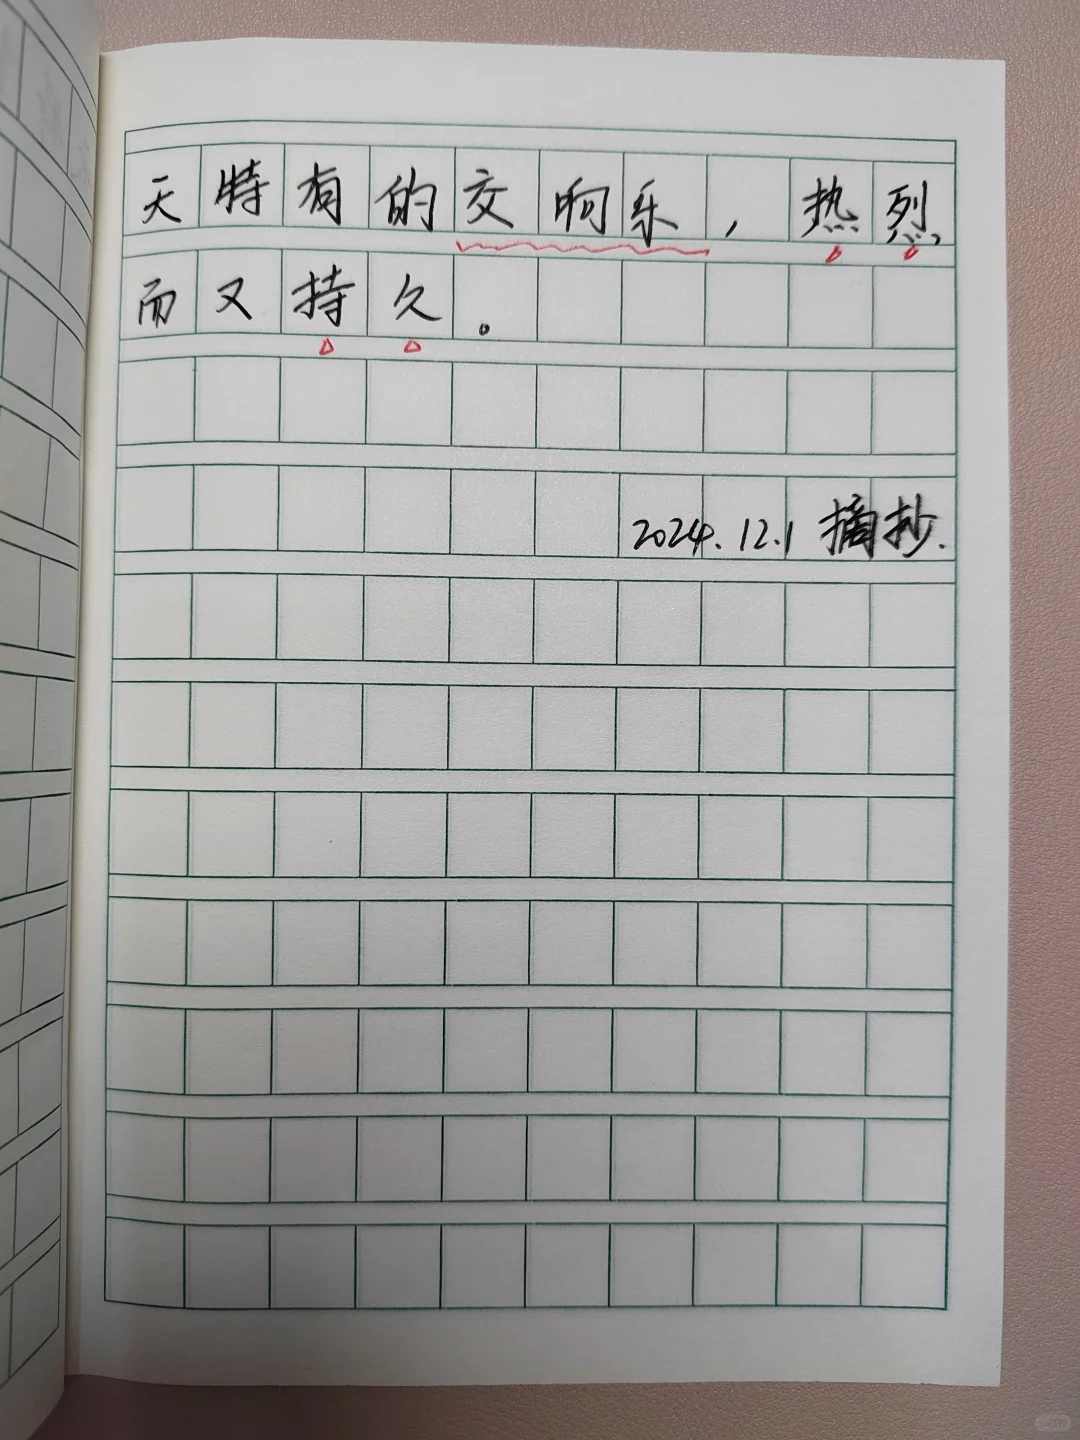 天特有的交响乐，热烈，
而又持久。
2024.12.1 摘抄.